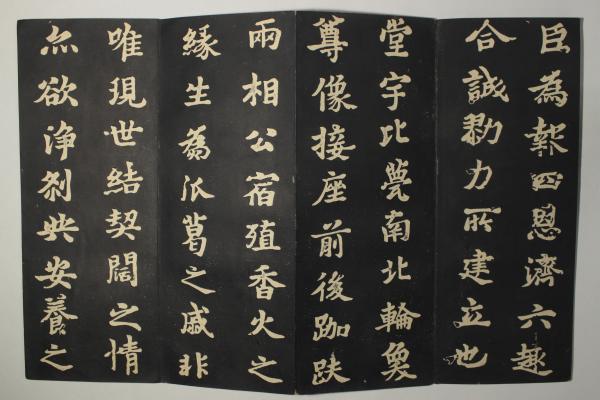 臣為報四恩濟六趣
合誠勠力所建立也
堂宇比甍南北輪奐
尊像接座前後跏趺
兩相公宿殖香火之
緣生為瓜葛之戚非
唯現世結契闊之情
亦欲浄刹共安養之